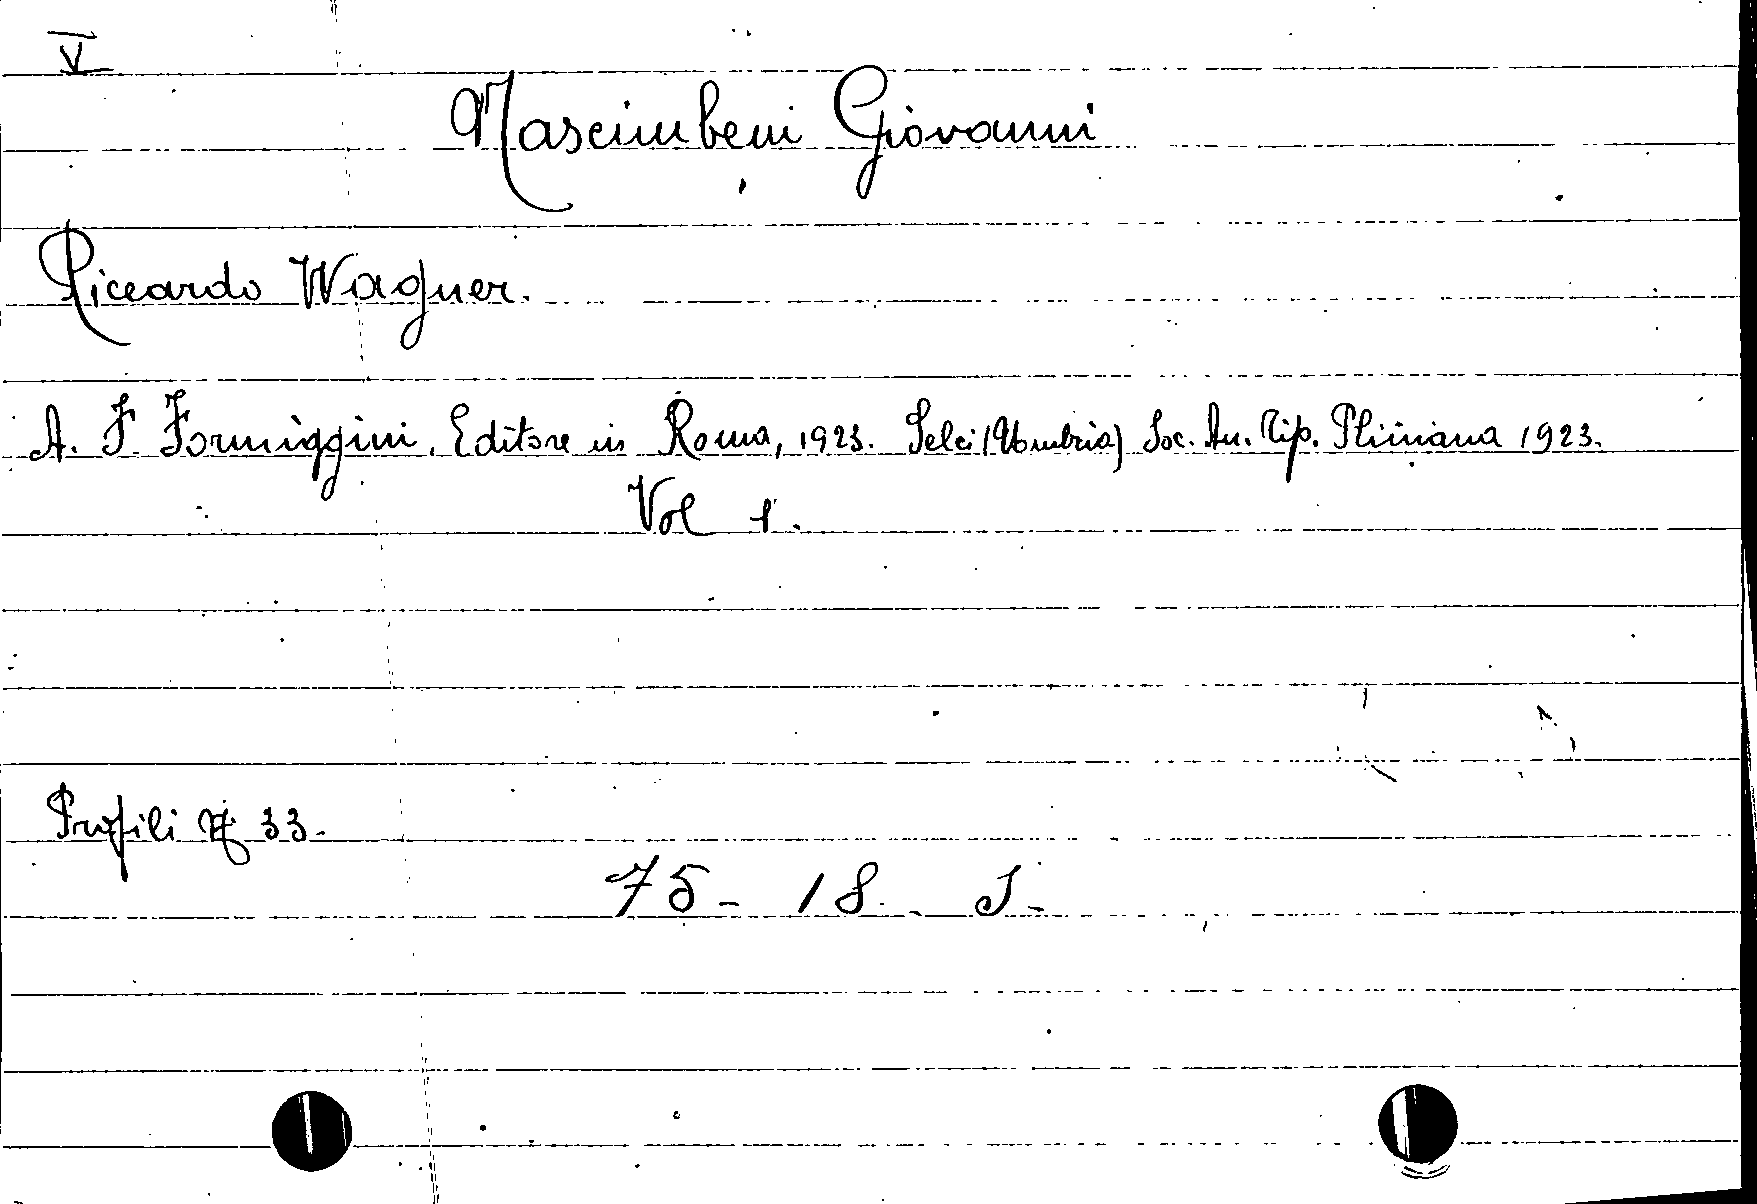 V
Nascimbeni Giovanni
Riccardo Wagner.
A. F. Formiggini, Editore in Roma, 1923. Selci (Umbria) Soc. An. Tip. Pliniana 1923.
Vol 1.
Profili N. 33.
75 - 18 - J -